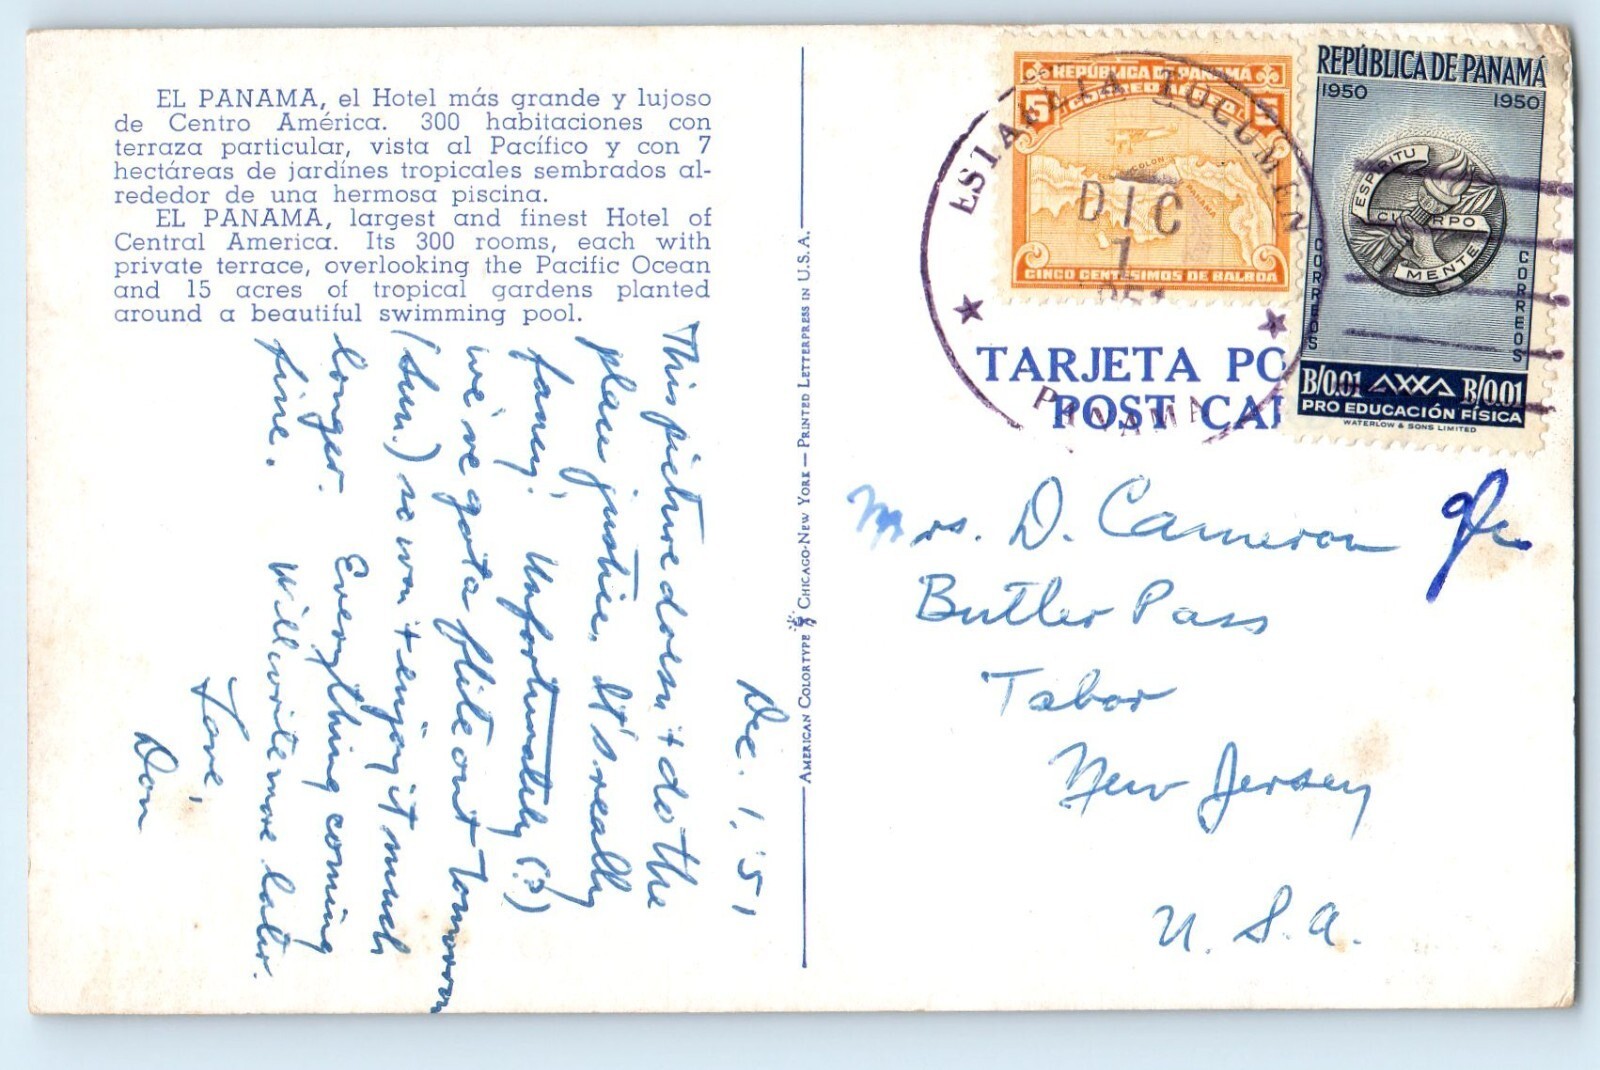 EL PANAMA, el Hotel más grande y lujoso
de Centro América. 300 habitaciones con
terraza particular, vista al Pacífico y con 7
hectáreas de jardínes tropicales sembrados al-
rededor de una hermosa piscina.
EL PANAMA, largest and finest Hotel of
Central America. Its 300 rooms, each with
private terrace, overlooking the Pacific Ocean
and 15 acres of tropical gardens planted
around a beautiful swimming pool.
Dec. 1, '51
This picture doesn't do the
place justice. It's really
fancy! Unfortunately (?)
we've got a flite out tomorrow
(Sun.) so won't enjoy it much
longer. Everything coming
fine. Will write more later.
Love,
Don
AMERICAN COLORTYPE CHICAGO-NEW YORK — PRINTED LETTERPRESS IN U.S.A.
REPÚBLICA DE PANAMÁ
CORREO AEREO
5 5
COLON
PANAMA
CINCO CENTESIMOS DE BALBOA
ESTAFETA TOCUMEN
DIC
1
PANAMA
REPÚBLICA DE PANAMÁ
1950 1950
ESPIRITU
CUERPO
MENTE
CORREOS CORREOS
B/0.01 B/0.01
PRO EDUCACIÓN FÍSICA
WATERLOW & SONS LIMITED
TARJETA PO
POST CAR
Mrs. D. Cameron
Butler Pass
Tabor
New Jersey
U. S. A.